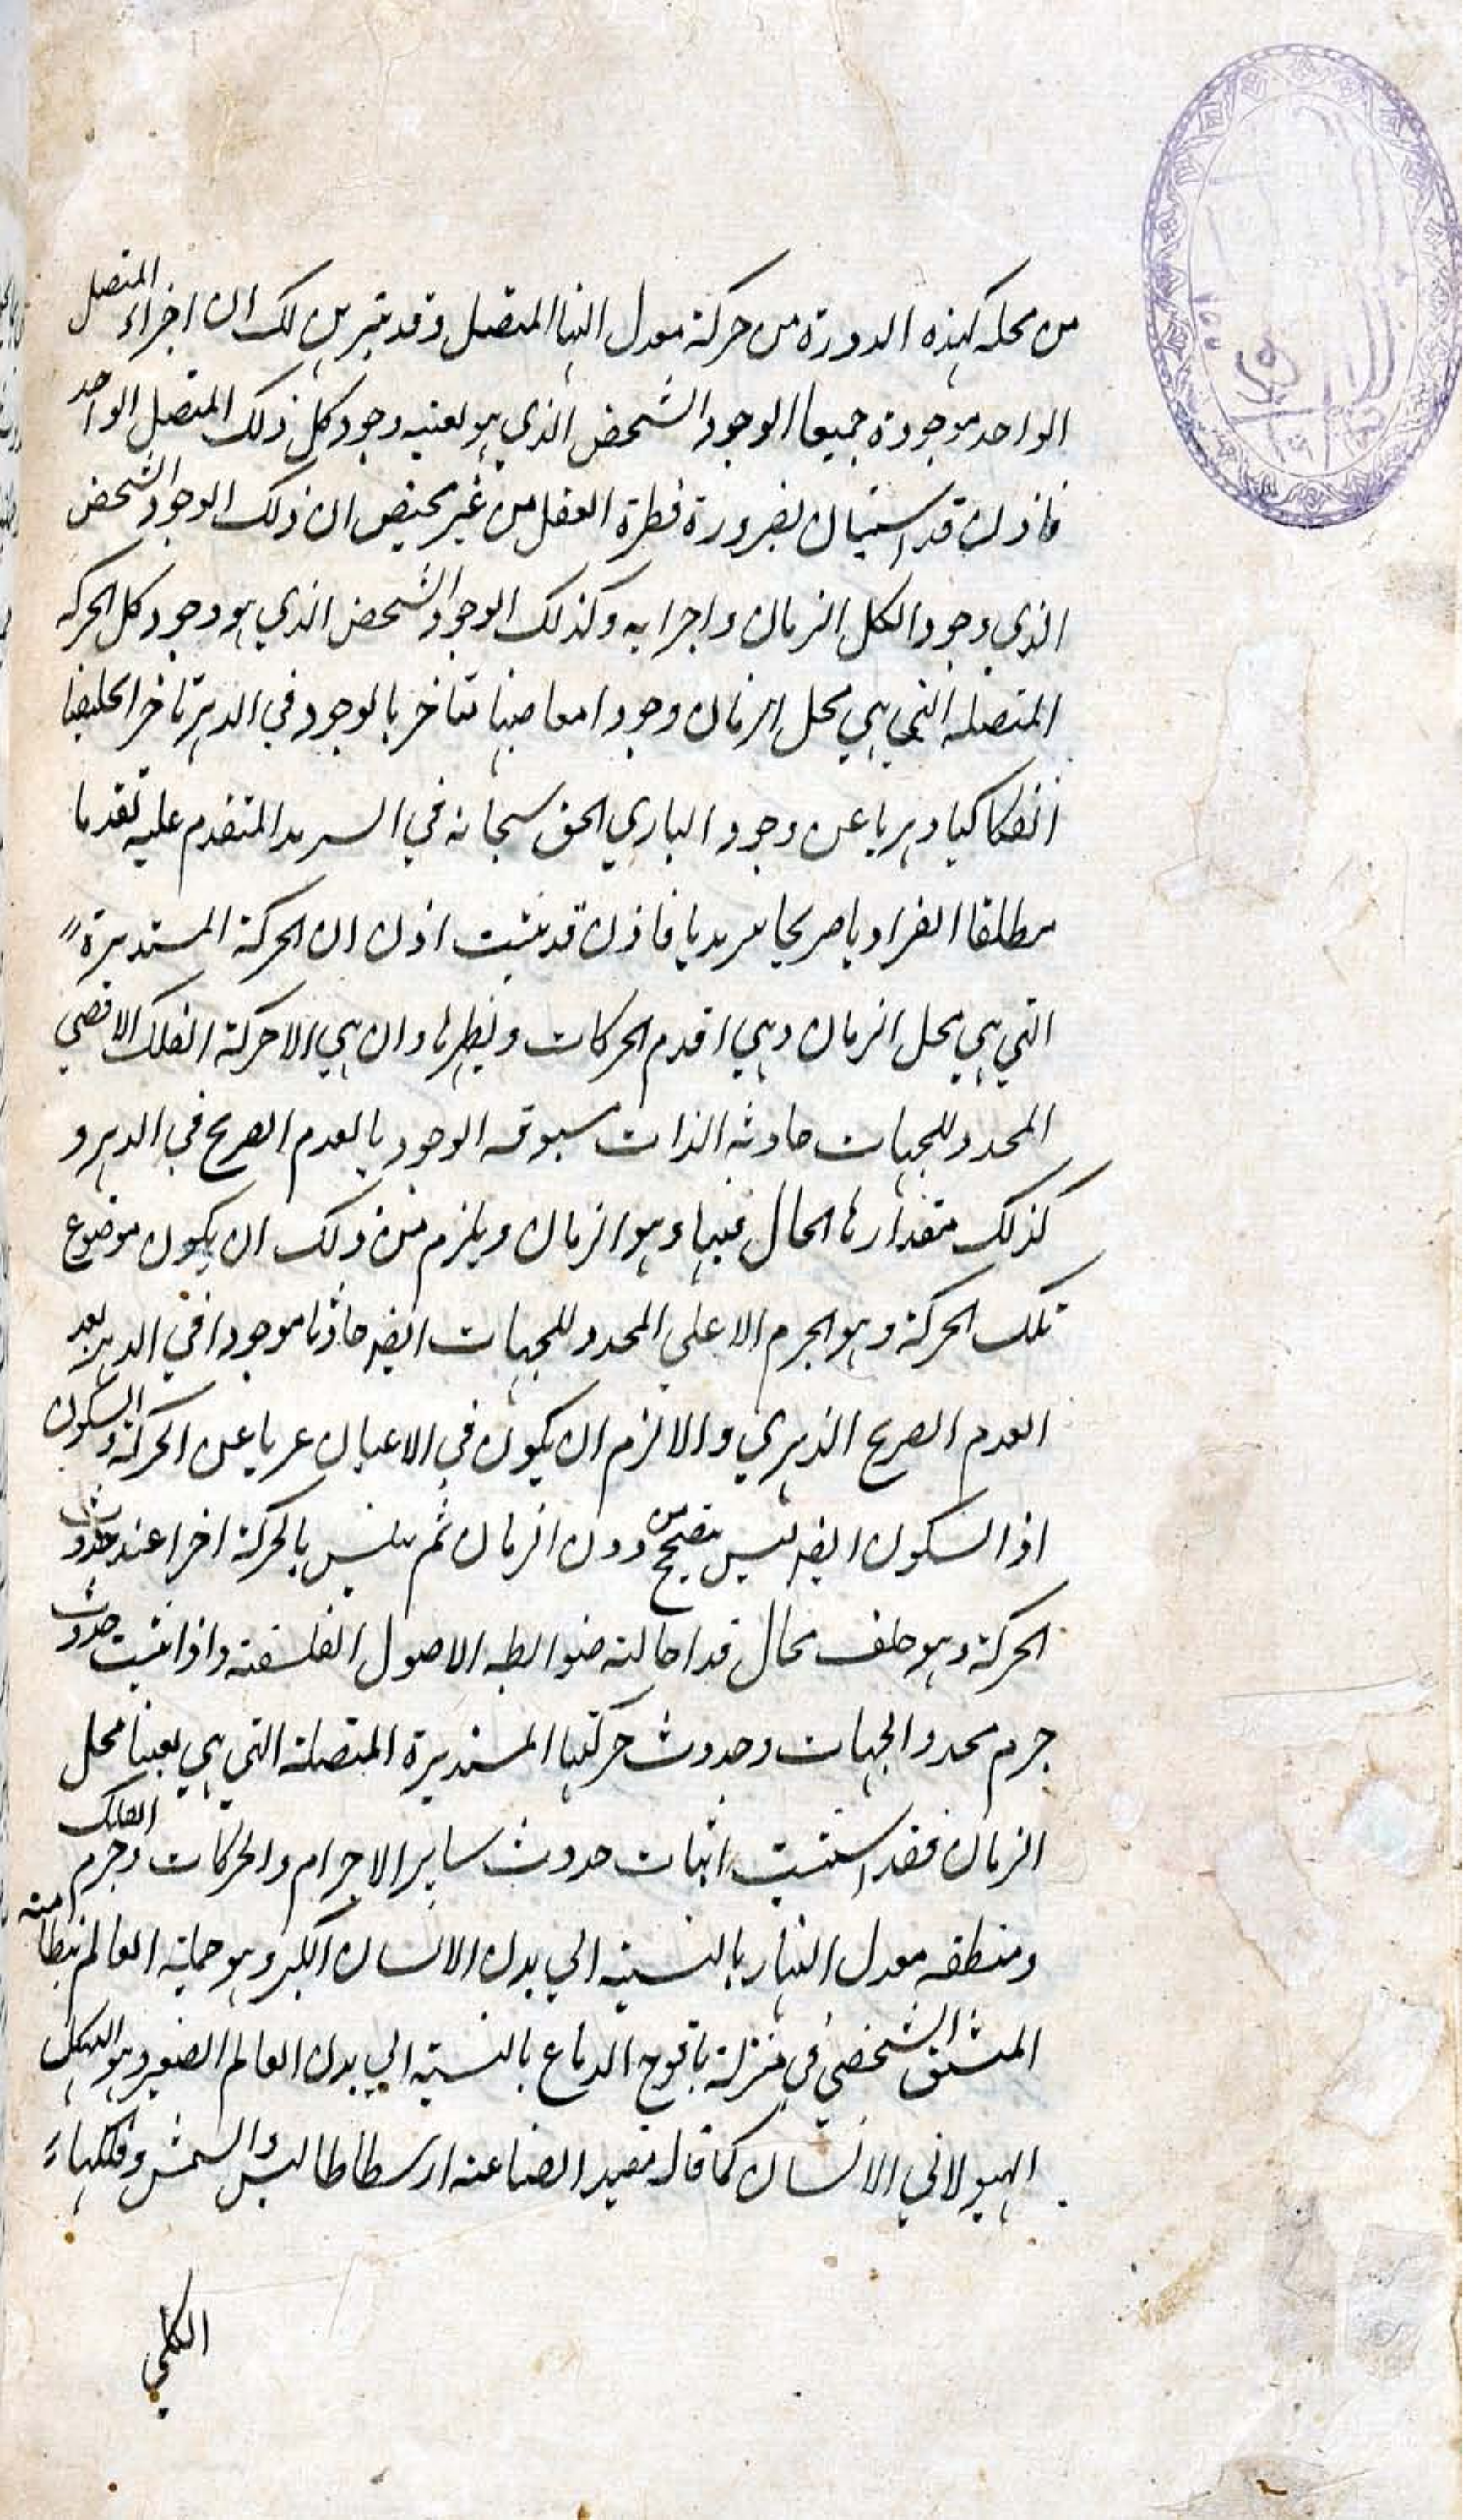 من محله كهذه الدورة من حركة معدل النها المتصل وقد تبرهن لك ان اجزاء المتصل
الواحد موجودة جميعا الوجود الشخص الذي هو بعنيه وجود كل ذلك المتصل الواحد
فاذن قد استبان بضرورة فطرة العقل من غير محيص ان ذلك الوجود الشخص
الذي وجود الكل الزمان واجزايه وكذلك الوجود الشخص الذي هو وجود كل الحركه
المتصله التي هي محل الزمان وجود امعا صبها تتاخر بالوجود في الدهر تاخرا تخليضا
انفكاكيا دهريا عن وجود الباري الحق سبحانه في السرمد المتقدم عليه تقدما
مطلقا انفراديا صريحا سرمديا فاذن قد ثبت اذن ان الحركة المستديرة
التي هي محل الزمان وهي اقدم الحركات ونظيرها وان هي الا حركة الفلك الاقصي
المحدد للجهات حادثه الذات مسبوقه الوجود بالعدم الصريح في الدهر و
كذلك مقدارها الحال فيها وهو الزمان ويلزم من ذلك ان يكون موضوع
تلك الحركة وهو الجرم الاعلي المحدد للجهات ايضه حادثا موجودا في الدهر بعد
العدم الصريح الدهري والا لزم ان يكون في الاعيان عريا عن الحركة والسكون
اذ السكون ايضه ليس يتصحح من دون الزمان ثم يتلبس بالحركة اخرا عند حدوث
الحركة وهو خلف محال قد احالته ضوابط الاصول الفلسفته واذا ثبت حدوث
جرم محدد الجهات وحدوث حركتها المستديرة المتصلة التي هي بعينها محل
الزمان فقد استتب اثبات حدوث ساير الاجرام والحركات وجرم الفلك
ومنطقه معدل النهار بالنسبته الي بدن الانسان الكبر وهو حملة العالم بنطامته
المتسق الشخصي في منزلة يافوخ الدماغ بالنسبته الي بدن العالم الصغير وهو الهيكل
الهيولاني الانسان كما قال مفيد الصناعته ارسطاطاليس والشمس وفلكها
الكلي